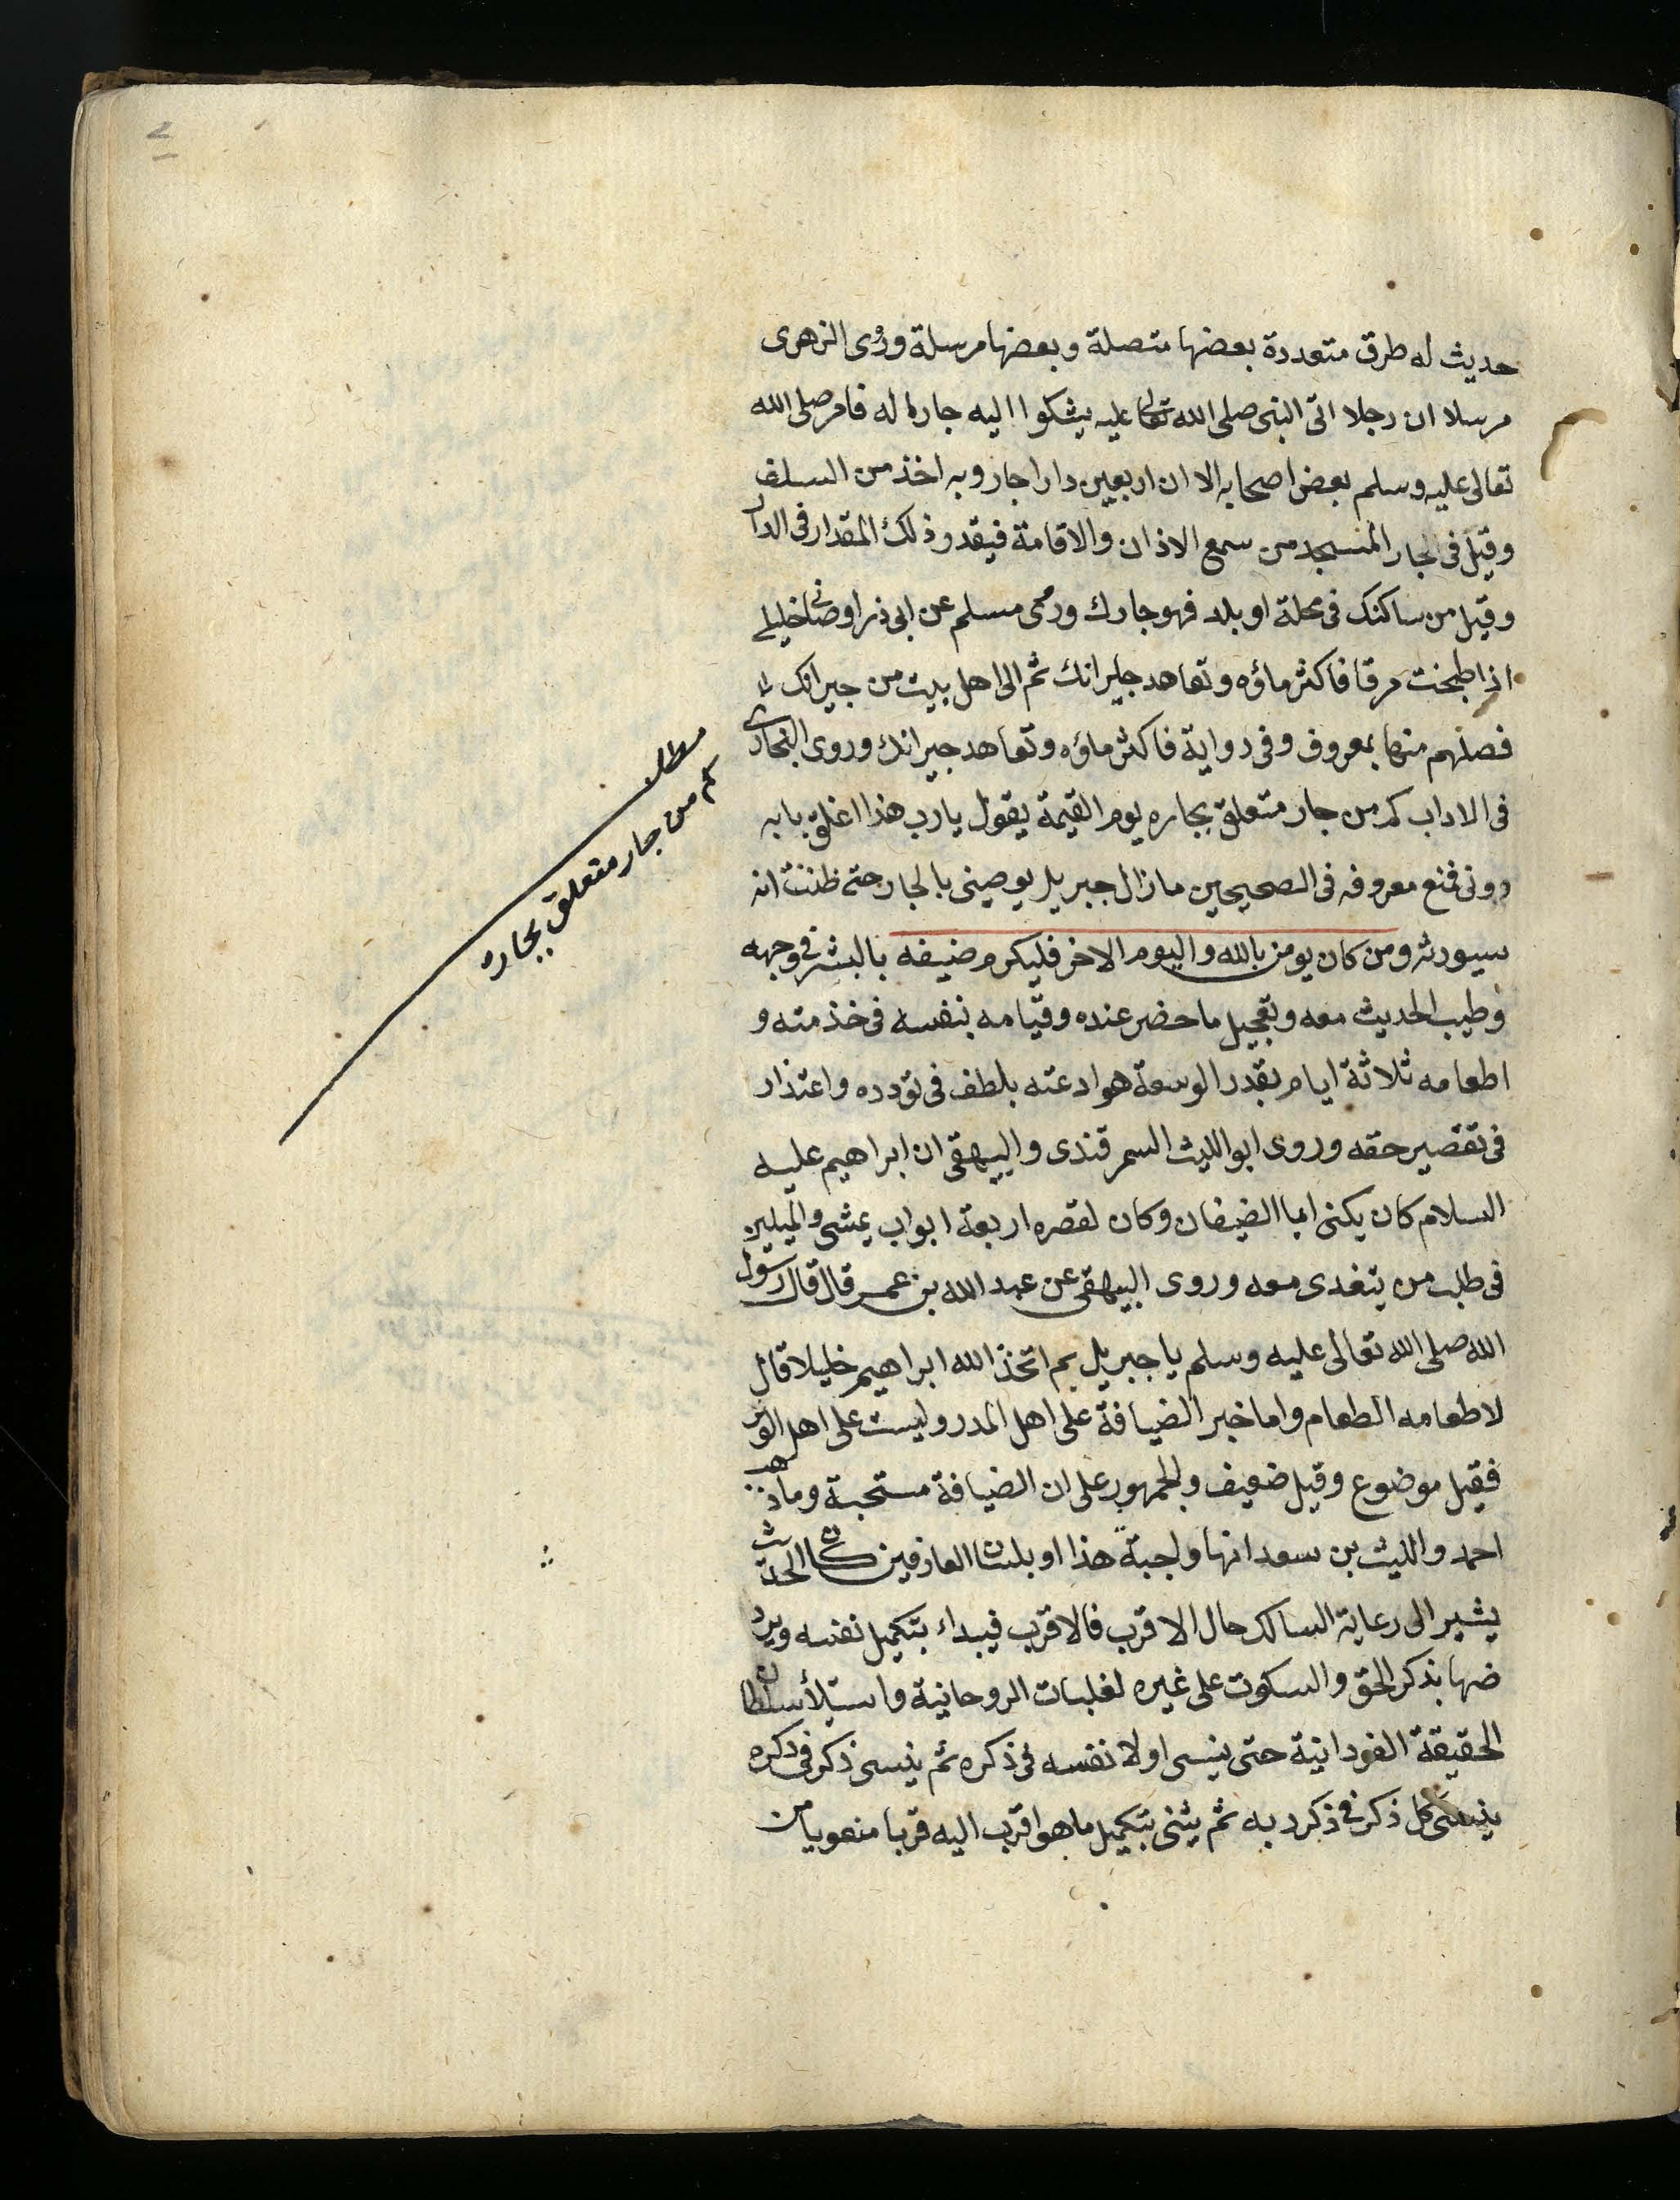 حديث له طرق متعددة بعضها متصلة وبعضها مرسلة وروى الزهرى
مرسلا ان رجلا اتى النبى صلى الله تعالى عليه يشكوا اليه جارا له فامر صلى الله
تعالى عليه وسلم بعض اصحابه الا ان اربعين دارا جار وبه اخذ من السلف
وقيل فى الجار المسجد من سمع الاذان والاقامة فيقدر ذلك المقدار فى الدار
وقيل من ساكنك فى محلة او بلد فهو جارك وروى مسلم عن ابى ذر اوصانى خليلى
اذا طبخت مرقا فاكثر ماؤه وتعاهد جيرانك ثم الى اهل بيت من جيرانك
فصلهم منها بمعروف وفى رواية فاكثر ماؤه وتعاهد جيرانك وروى البخارى
فى الاداب كم من جار متعلق بجاره يوم القيمة يقول يارب هذا اغلق بابه
دونى فمنع معروفه فى الصحيحين مازال جبريل يوصينى بالجار حتى ظننت انه
سيورثه ومن كان يومن بالله واليوم الاخر فليكرم ضيفه بالبشر فى وجهه
وطيب الحديث معه وتعجيل ما حضر عنده وقيامه بنفسه فى خذمته و
اطعامه ثلاثة ايام بقدر الوسعة هوادعته بلطف فى تودده واعتذار
فى تقصير حقه وروى ابو الليث السمرقندى والبيهقى ان ابراهيم عليه
السلام كان يكنى ابا الضيفان وكان لقصره اربعة ابواب يمشى والميلين
فى طلب من يتغدى معه وروى البيهقى عن عبد الله بن عمر قال قال رسول
الله صلى الله تعالى عليه وسلم يا جبريل بم اتخذ الله ابراهيم خليلا قال
لاطعامه الطعام واما خبر الضيافة على اهل المدر وليست على اهل الوبر
فقيل موضوع وقيل ضعيف والجمهور على ان الضيافة مستحبة ومذهب
احمد والليث بن سعد انها واجبة هذا او بلسان العارفين كان الحديث
يشير الى رعاية السالك حال الاقرب فالاقرب فيبداء بتكميل نفسه ويرو
ضها بذكر الحق والسكوت على غيره لغلبات الروحانية واستيلأ سلطان
الحقيقة الفردانية حتى ينسى اولا نفسه فى ذكره ثم ينسى ذكر فى ذكره
ينسى كل ذكر فى ذكر به ثم يثنى بتكميل ما هو اقرب اليه قربا منعويا من
مطلب
كم من جار متعلق بجاره